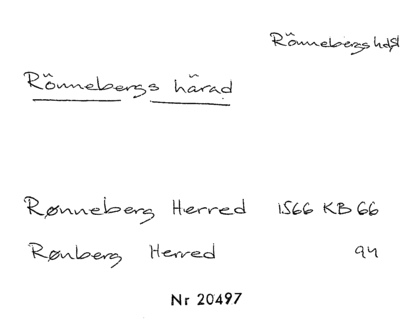 Rönnebergs hd
Rönnebergs härad
Rønneberg Herred 1566 KB 66
Rønberg Herred 94
Nr 20497